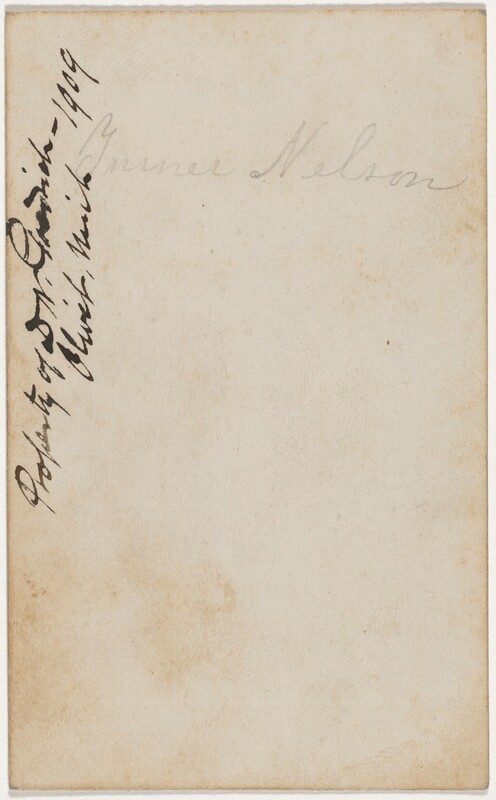 Turner Nelson
Property of D. N. Goodrich - 1909
Olivet, Mich